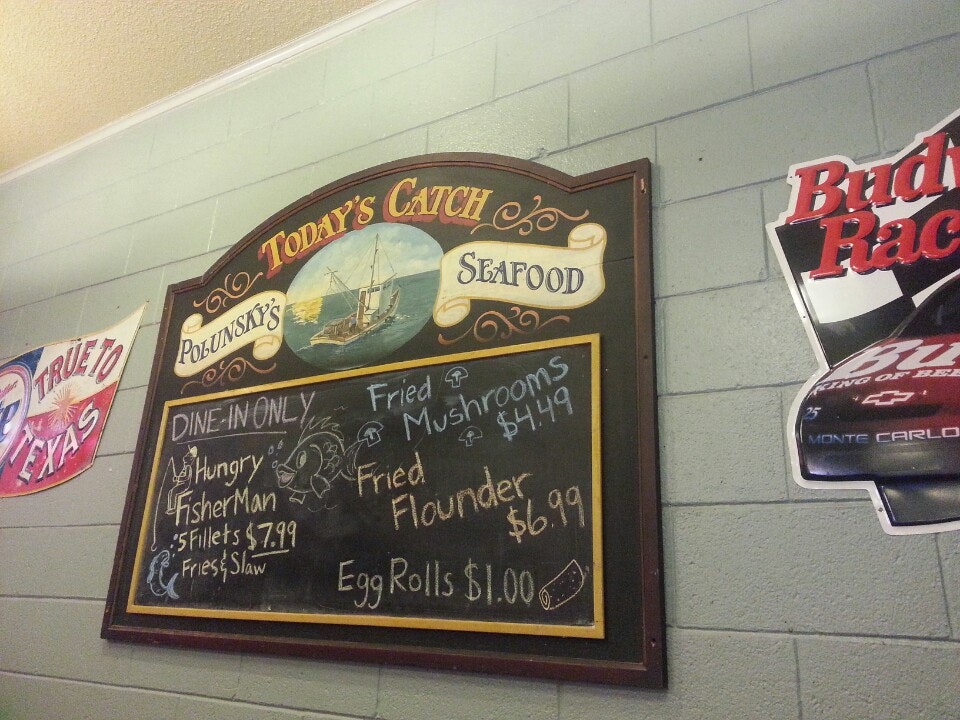 TODAY'S CATCH
POLUNSKY'S
SEAFOOD
DINE-IN ONLY
Hungry
FisherMan
5 Fillets $7.99
Fries & Slaw
Fried
Mushrooms
$4.49
Fried
Flounder
$6.99
Egg Rolls $1.00
TRUE TO
TEXAS
KING OF BEE
25
MONTE CARLO